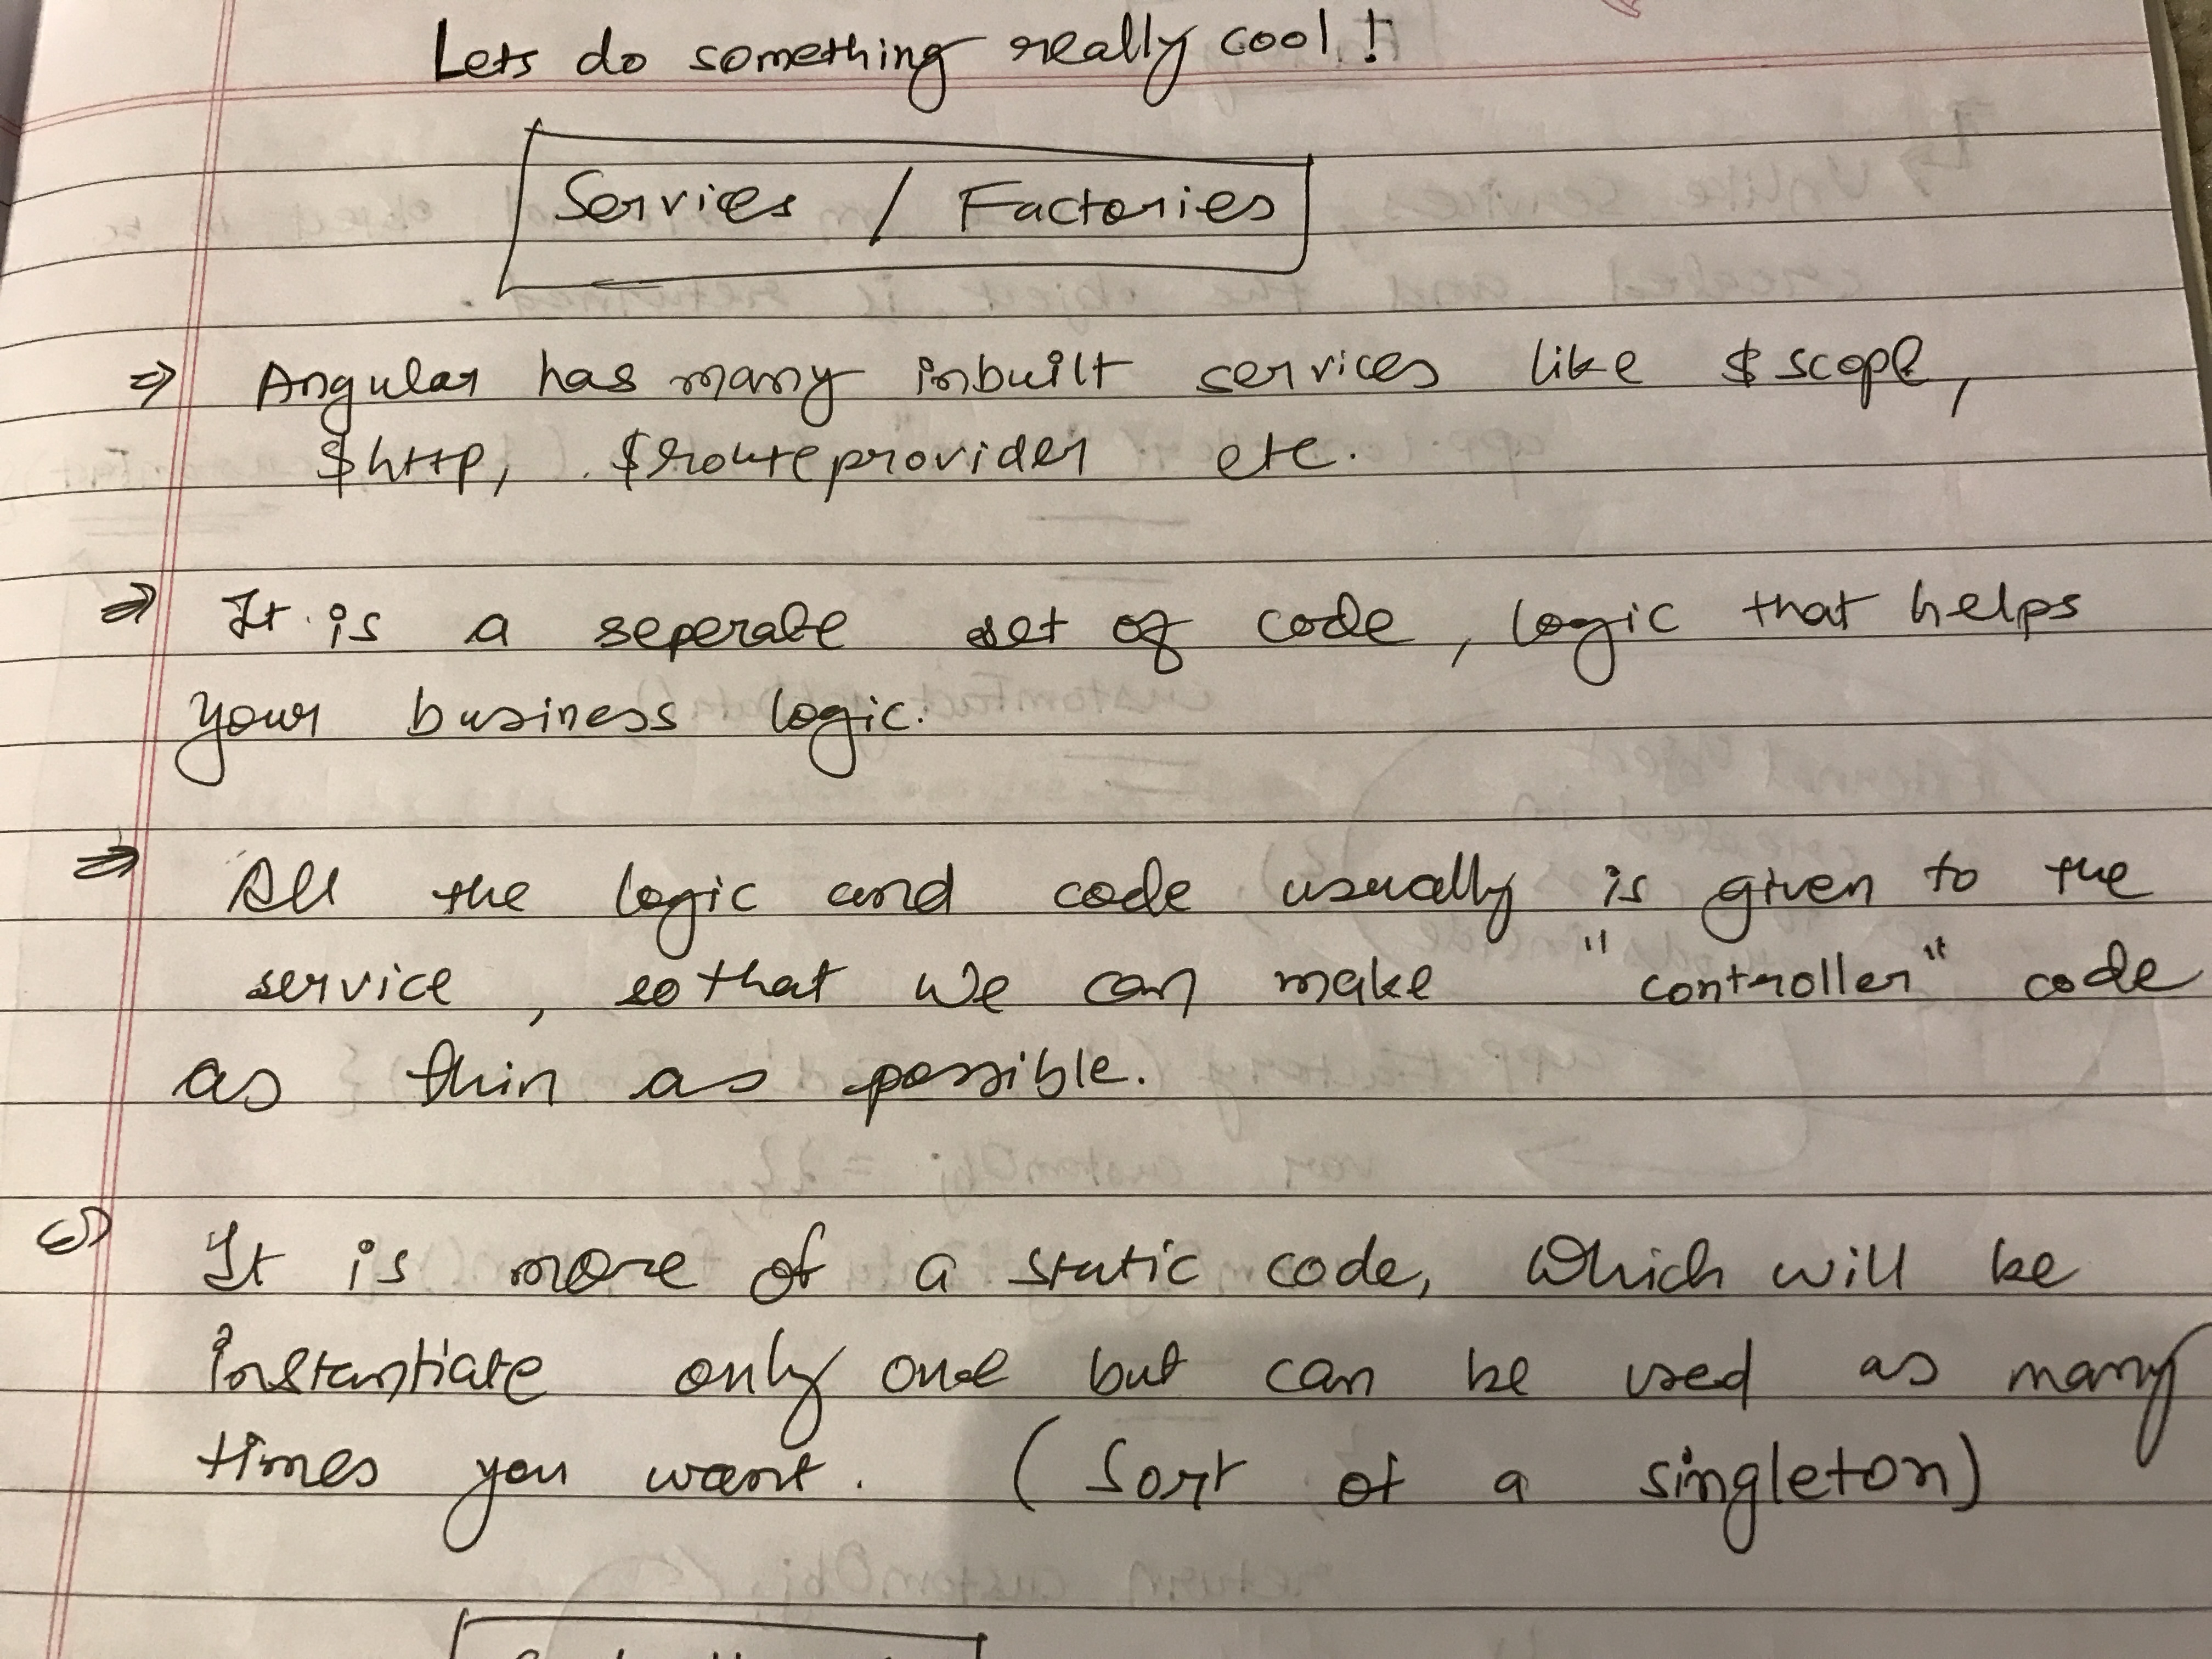 Lets do something really cool!
Services / Factories
⇒ Angular has many inbuilt services like $scope,
$http, $routeprovider etc.
⇒ It is a seperate set of code, logic that helps
your business logic.
⇒ All the logic and code usually is given to the
service, so that we can make "controller" code
as thin as possible.
⇒ It is more of a static code, which will be
instantiate only one but can be used as many
times you want. (Sort of a singleton)